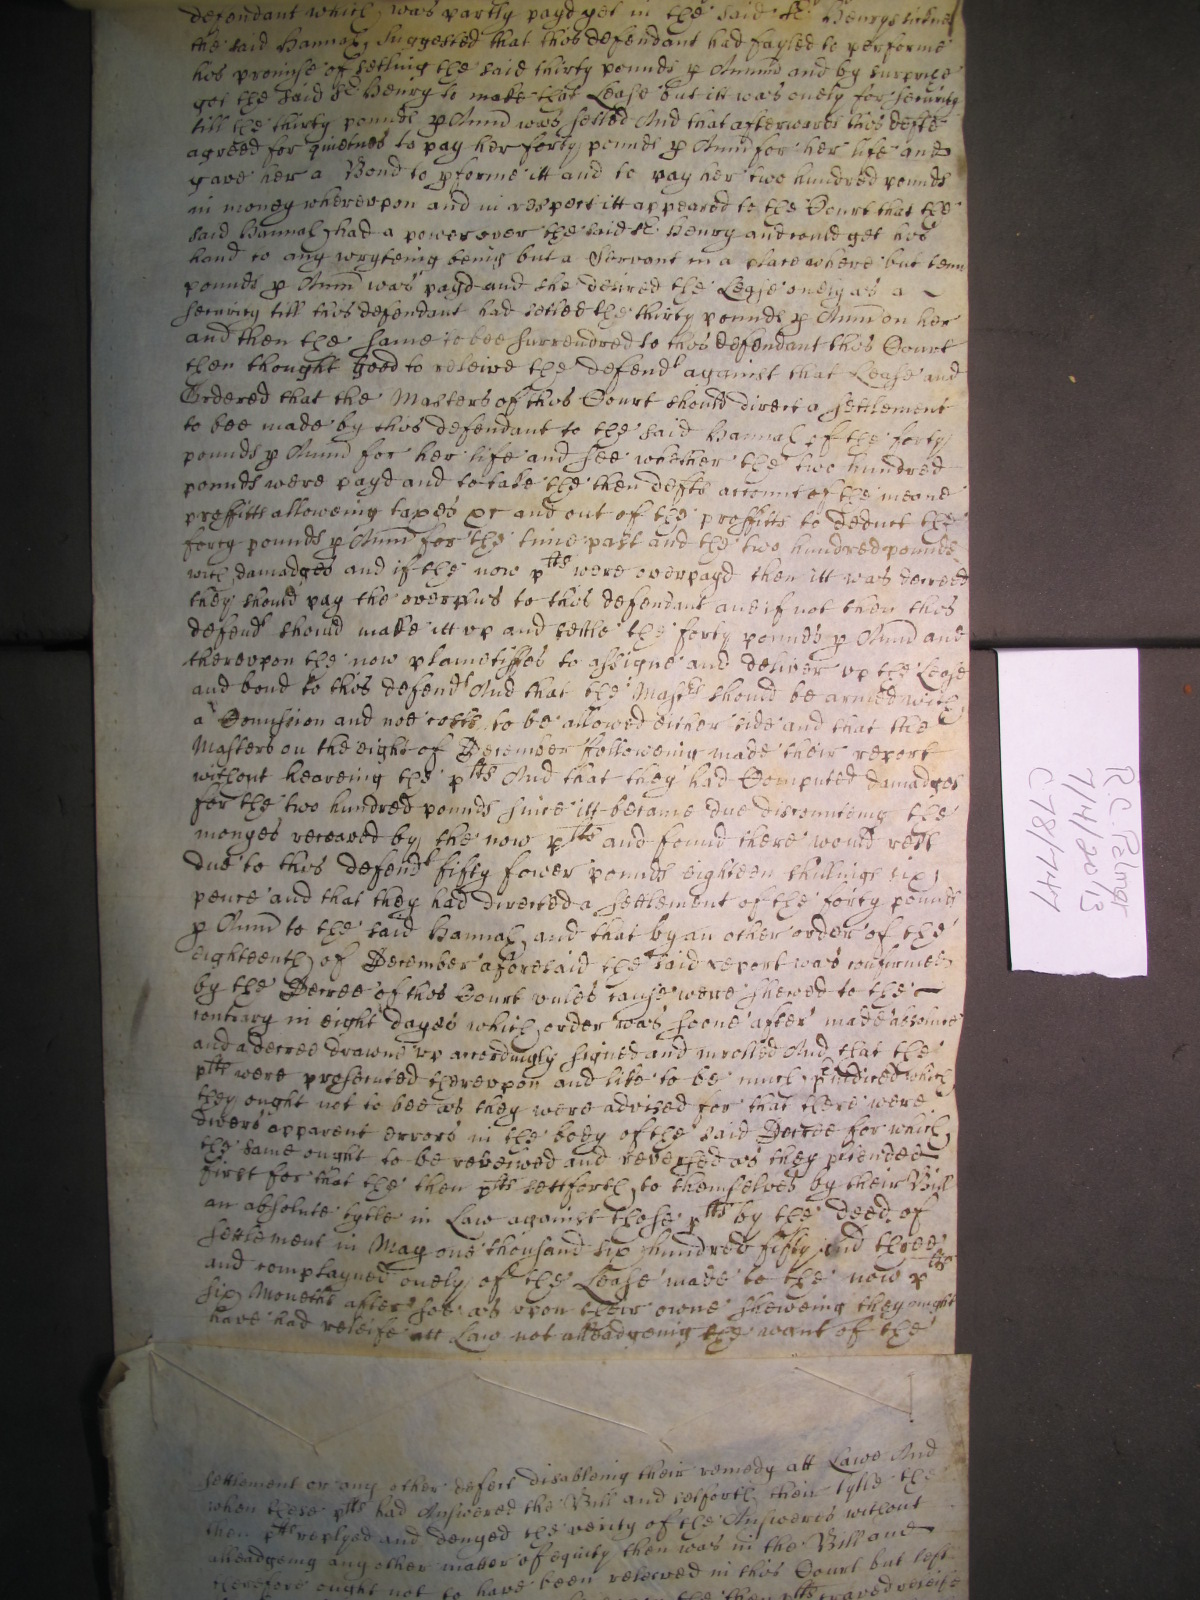 defendant which was partly payd yet in the said Sr Henrys
the said Hannah Suggested that this defendant had fayled to performe
his promise of setling the said thirty pounds p Annu and by surprize
got the said Sr Henry to make that Lease but itt was onely for security
till the thirty pounds p Annu was setled And that afterwards this defte
agreed for quietnes to pay her forty pounds p Annu for her life and
gave her a Bond to pforme itt and to pay her two hundred pounds
in money wherevpon and in respect itt appeared to the Court that the
said Hannah had a power over the said Sr Henry and could get his
hand to any wryteing being but a Servant in a place where but tenn
pounds p Annu was payd and she desired the Lease onely as a
security till this defendant had setled the thirty pounds p Annu on her
and then the same to bee surrendred to this defendant this Court
then thought good to releive the defendt against that Lease and
Ordered that the Masters of this Court should direct a settlement
to bee made by this defendant to the said Hannah of the forty
pounds p Annu for her life and see whether the two hundred
pounds were payd and to take the then defts account of the meane
proffitts allowing taxes &c and out of the proffitts to deduct the
forty pounds p Annu for the time past and the two hundred pounds
with damadges and if the now ptts were overpayd then itt was decreed
they should pay the overplus to this defendant and if not then this
defendt should make itt vp and settle the forty pounds p Annu and
therevpon the now plaintiffes to assigne and deliver vp the Lease
and bond to this defendt And that the Mastrs should be armed with
a Comission and noe costs to be allowed either side and that the
Masters on the eight of December followeing made their report
without heareing the ptts And that they had Computed damadges
for the two hundred pounds since itt became due discounting the
moneyes receaved by the now ptts and found there would rest
due to this defendt fifty fower pounds eighteen shillings six
pence and that they had directed a settlement of the forty pounds
p Annu to the said Hannah and that by an other order of the
eighteenth of December aforesaid the said report was confirmed
by the Decree of this Court vnles cause were shewed to the
contrary in eight dayes which order was soone after made absolute
and a decree drawne vp accordingly signed and inrolled And that the
ptts were prosecuted therevpon and like to be much pjudiced which
they ought not to bee as they were advised for that there were
divers apparent errors in the body of the said Decree for which
the same ought to be reveiwed and reversed as they ptended
First for that the then ptts settforth to themselves by their Bill
an absolute tytle in Law against those ptts by the deed of
settlement in May one thousand six hundred fifty and three
and complayned onely of the Lease made to the now ptts
six Moneths after soe as vpon their owne sheweing they might
have had releife att Law not alleadgeing the want of the
settlement or any other defect disableing their remedy att Lawe And
when these ptts had Answered the Bill and setforth their tytle the
then ptts replyed and denyed the verity of the Answeres without
alleadgeing any other matter of equity then was in the Bill and
therefore ought not to have been releived in this Court but left
R.C. Palmer
7/14/2013
C 78/747